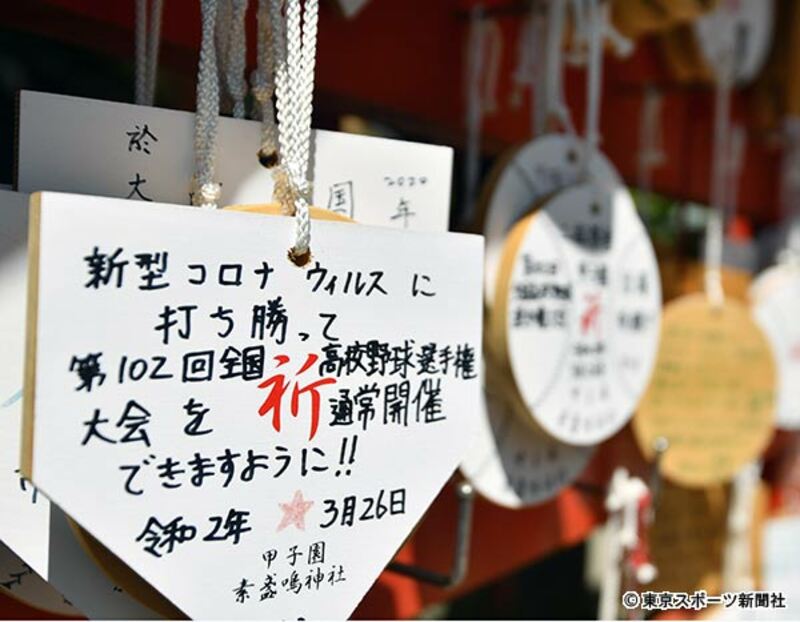 於
大
国
2020
年
新型コロナウィルスに
打ち勝って
第102回全国高校野球選手権
祈
大会を通常開催
できますように!!
令和2年 3月26日
甲子園
素盞嗚神社
祈
©東京スポーツ新聞社